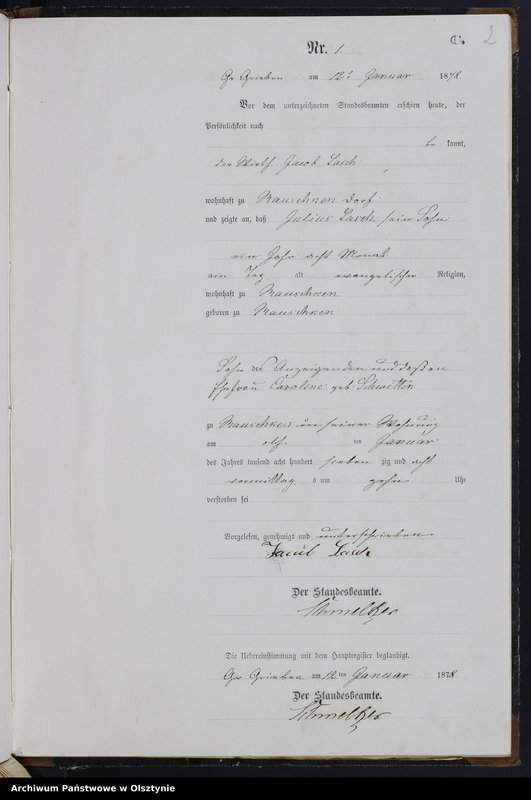 C. 2
Nr. 1
Gr Grieben am 12t Januar 1878
Vor dem unterzeichneten Standesbeamten erschien heute, der
Persönlichkeit nach
be kannt,
der Wirth Jacob Lasch
wohnhaft zu Rauschken Dorf
und zeigte an, daß Julius Lasch sein Sohn
ein Jahr acht Monat
ein Tag alt evangelischer Religion,
wohnhaft zu Rauschken
geboren zu Rauschken
Sohn des Anzeigenden und dessen
Ehefrau Caroline geb.
zu Rauschken in seiner Wohnung
am elf ten Januar
des Jahres tausend acht hundert sieben zig und acht
vormittag s um zehn Uhr
verstorben sei
Vorgelesen, genehmigt und unterschrieben
Jacob Lasch
Der Standesbeamte.
Schmeltzer
Die Uebereinstimmung mit dem Hauptregister beglaubigt.
Gr Grieben am 12 ten Januar 1878
Der Standesbeamte.
Schmeltzer
Archiwum Państwowe w Olsztynie